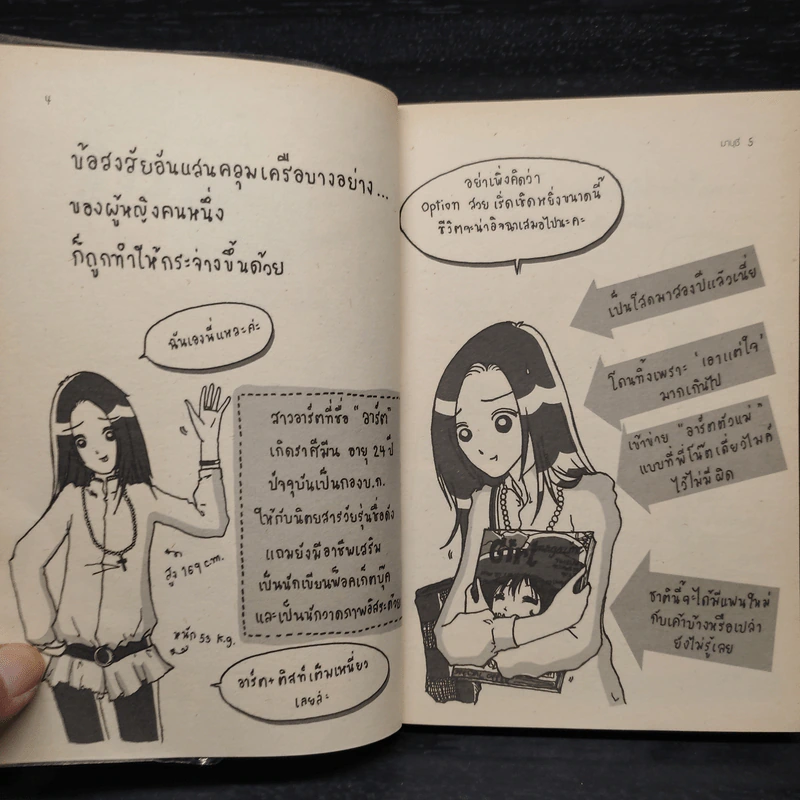 4
ข้อสงสัยอันแสนคลุมเครือบางอย่าง...
ของผู้หญิงคนหนึ่ง
ก็ถูกทำให้กระจ่างขึ้นด้วย
ฉันเองนี่แหละค่ะ
สาวอาร์ตที่ชื่อ "อาร์ต"
เกิดราศีมีน อายุ 24 ปี
ปัจจุบันเป็นกองบ.ก.
ให้กับนิตยสารวัยรุ่นชื่อดัง
แถมยังมีอาชีพเสริม
เป็นนักเขียนพ็อคเก็ตบุ๊ค
และเป็นนักวาดภาพอิสระด้วย
สูง 169 cm.
หนัก 53 k.g.
อาร์ต+ติสท์ เต็มเหนี่ยว
เลยล่ะ
5
อย่าเพิ่งคิดว่า
Option สวย เริ่ด เชิด หยิ่งขนาดนี้
ชีวิตจะน่าอิจฉาเสมอไปนะคะ
เป็นโสดมาสองปีแล้วเนี่ย
โดนทิ้งเพราะ 'เอาแต่ใจ'
มากเกินไป
เข้าข่าย "อาร์ตตัวแม่"
แบบที่พี่โน๊ตเดี่ยวไมค์
ไว้ไม่มี ผิด
Girl
magazine
ชาตินี้จะได้มีแฟนใหม่
กับเค้าบ้างหรือเปล่า
ยังไม่รู้เลย